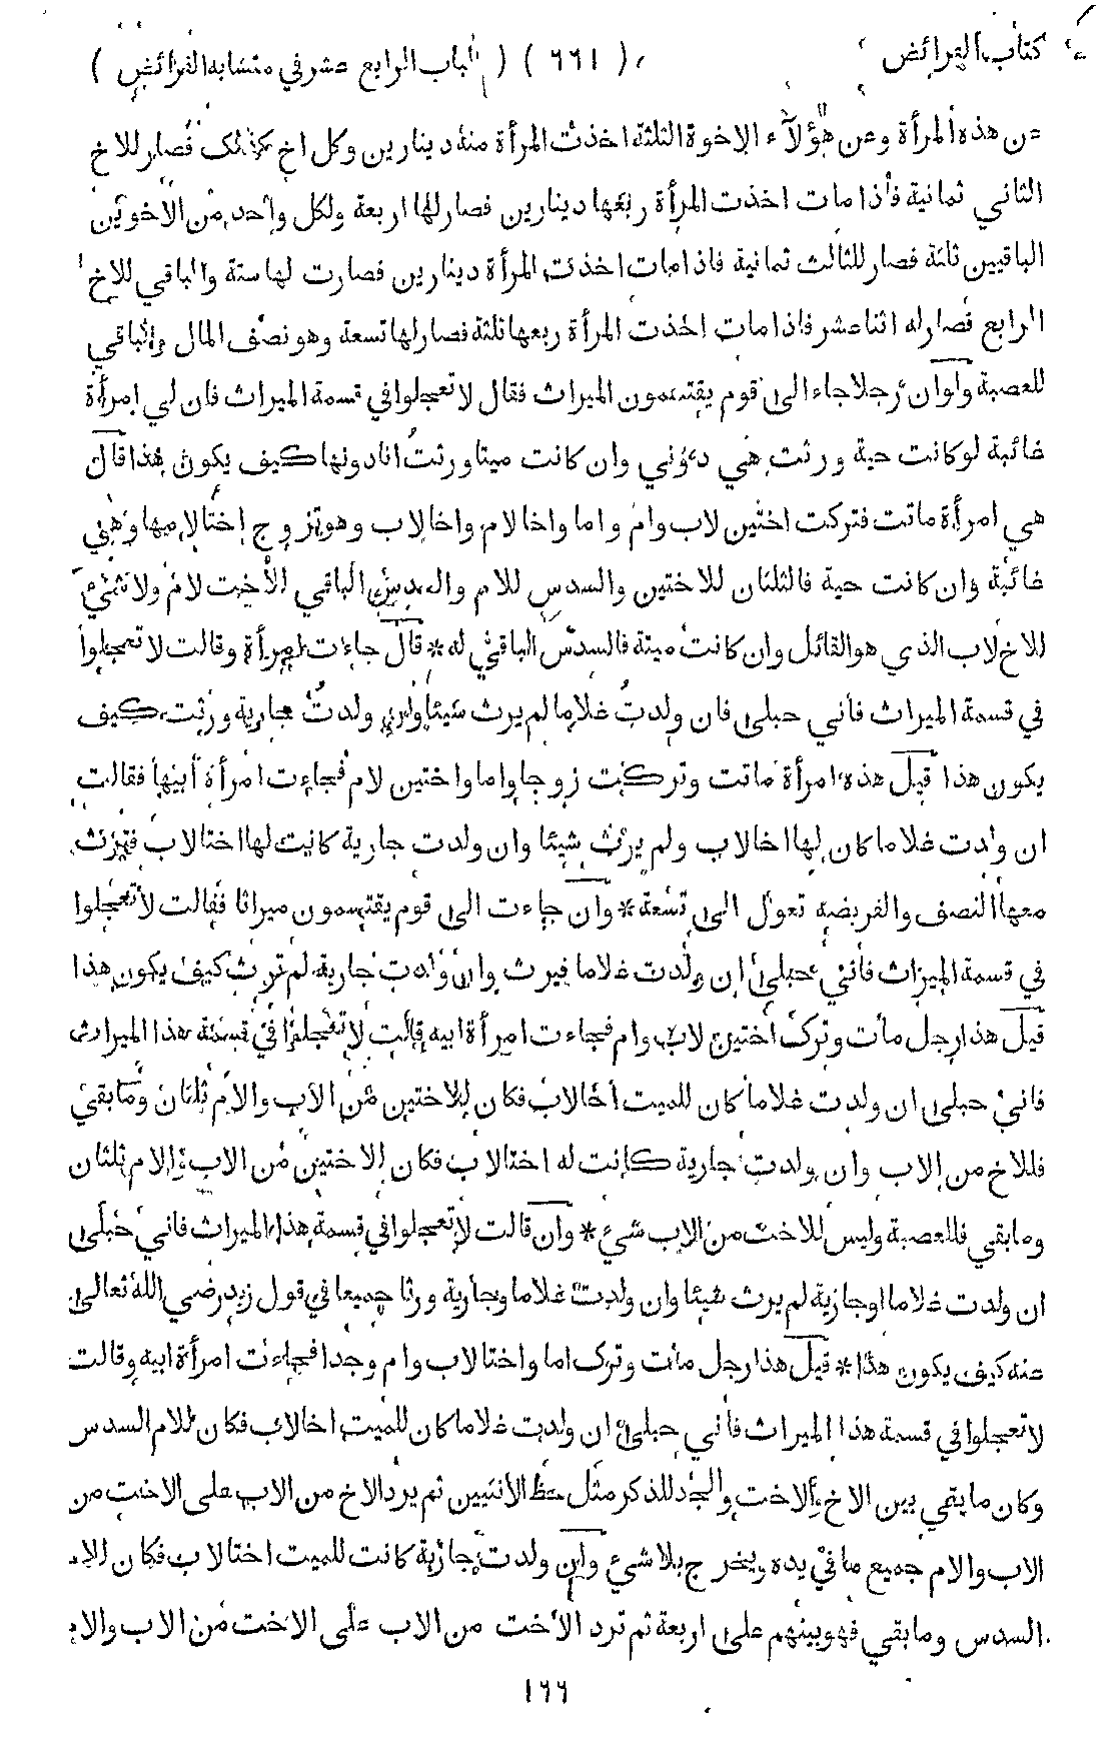 كتاب الفرائض (٦٦١) (الباب الرابع عشر في متشابه الفرائض)
عن هذه المرأة وعن هؤلاء الاخوة الثلثة اخذت المرأة منه دينارين وكل اخ كذلك فصار للاخ
الثاني ثمانية فأذا مات اخذت المرأة ربعها دينارين فصار لها اربعة ولكل واحد من الاخوين
الباقيين ثلثة فصار للثالث ثمانية فاذا مات اخذت المرأة دينارين فصارت لها ستة والباقي للاخ
الرابع فصار له اثنا عشر فاذا مات اخذت المرأة ربعها ثلثة فصار لها تسعة وهو نصف المال والباقي
للعصبة ولوان رجلا جاء الى قوم يقتسمون الميراث فقال لا تعجلوا في قسمة الميراث فان لي امرأة
غائبة لو كانت حية ورثت هي دوني وان كانت ميتا ورثت انا دونها كيف يكون هذا قال
هي امرأة ماتت فتركت اختين لاب وام واما واخا لام واخا لاب وهو تزوج اختا لامها وهي
غائبة وان كانت حية فالثلثان للاختين والسدس للام والسدس الباقي للأخت لام ولا شيء
للاخ لاب الذي هو القائل وان كانت ميتة فالسدس الباقي له * قال جاءت امرأة وقالت لا تعجلوا
في قسمة الميراث فأني حبلى فان ولدت غلاما لم يرث شيئا وان ولدت جارية ورثت كيف
يكون هذا قيل هذه امرأة ماتت وتركت زوجا واما واختين لام فجاءت امرأة أبيها فقالت
ان ولدت غلاما كان لها اخا لاب ولم يرث شيئا وان ولدت جارية كانت لها اختا لاب فترث
معها النصف والفريضة تعول الى تسعة * وان جاءت الى قوم يقتسمون ميراثا فقالت لا تعجلوا
في قسمة الميراث فأني حبلى ان ولدت غلاما فيرث وان ولدت جارية لم ترث كيف يكون هذا
قيل هذا رجل مات وترك اختين لاب وام فجاءت امرأة ابيه قالت لا تعجلوا في قسمة هذا الميراث
فاني حبلى ان ولدت غلاما كان للميت أخا لاب فكان للاختين من الاب والام ثلثان وما بقي
فللاخ من الاب وان ولدت جارية كانت له اختا لاب فكان للاختين من الاب والام ثلثان
وما بقي فللعصبة وليس للاخت من الاب شيء * وان قالت لا تعجلوا في قسمة هذا الميراث فاني حبلى
ان ولدت غلاما او جارية لم يرث شيئا وان ولدت غلاما وجارية ورثا جميعا في قول زيد رضي الله تعالى
عنه كيف يكون هذا * قيل هذا رجل مات وترك اما واختا لاب وام وجدا فجاءت امرأة ابيه وقالت
لا تعجلوا في قسمة هذا الميراث فأني حبلى ان ولدت غلاما كان للميت اخا لاب فكان للام السدس
وكان ما بقي بين الاخ والاخت والجد للذكر مثل حظ الانثيين ثم يرد الاخ من الاب على الاخت من
الاب والام جميع ما في يده ويخرج بلا شيء وان ولدت جارية كانت للميت اختا لاب فكان للام
السدس وما بقي فهو بينهم على اربعة ثم ترد الأخت من الاب على الاخت من الاب والام
١٦٦